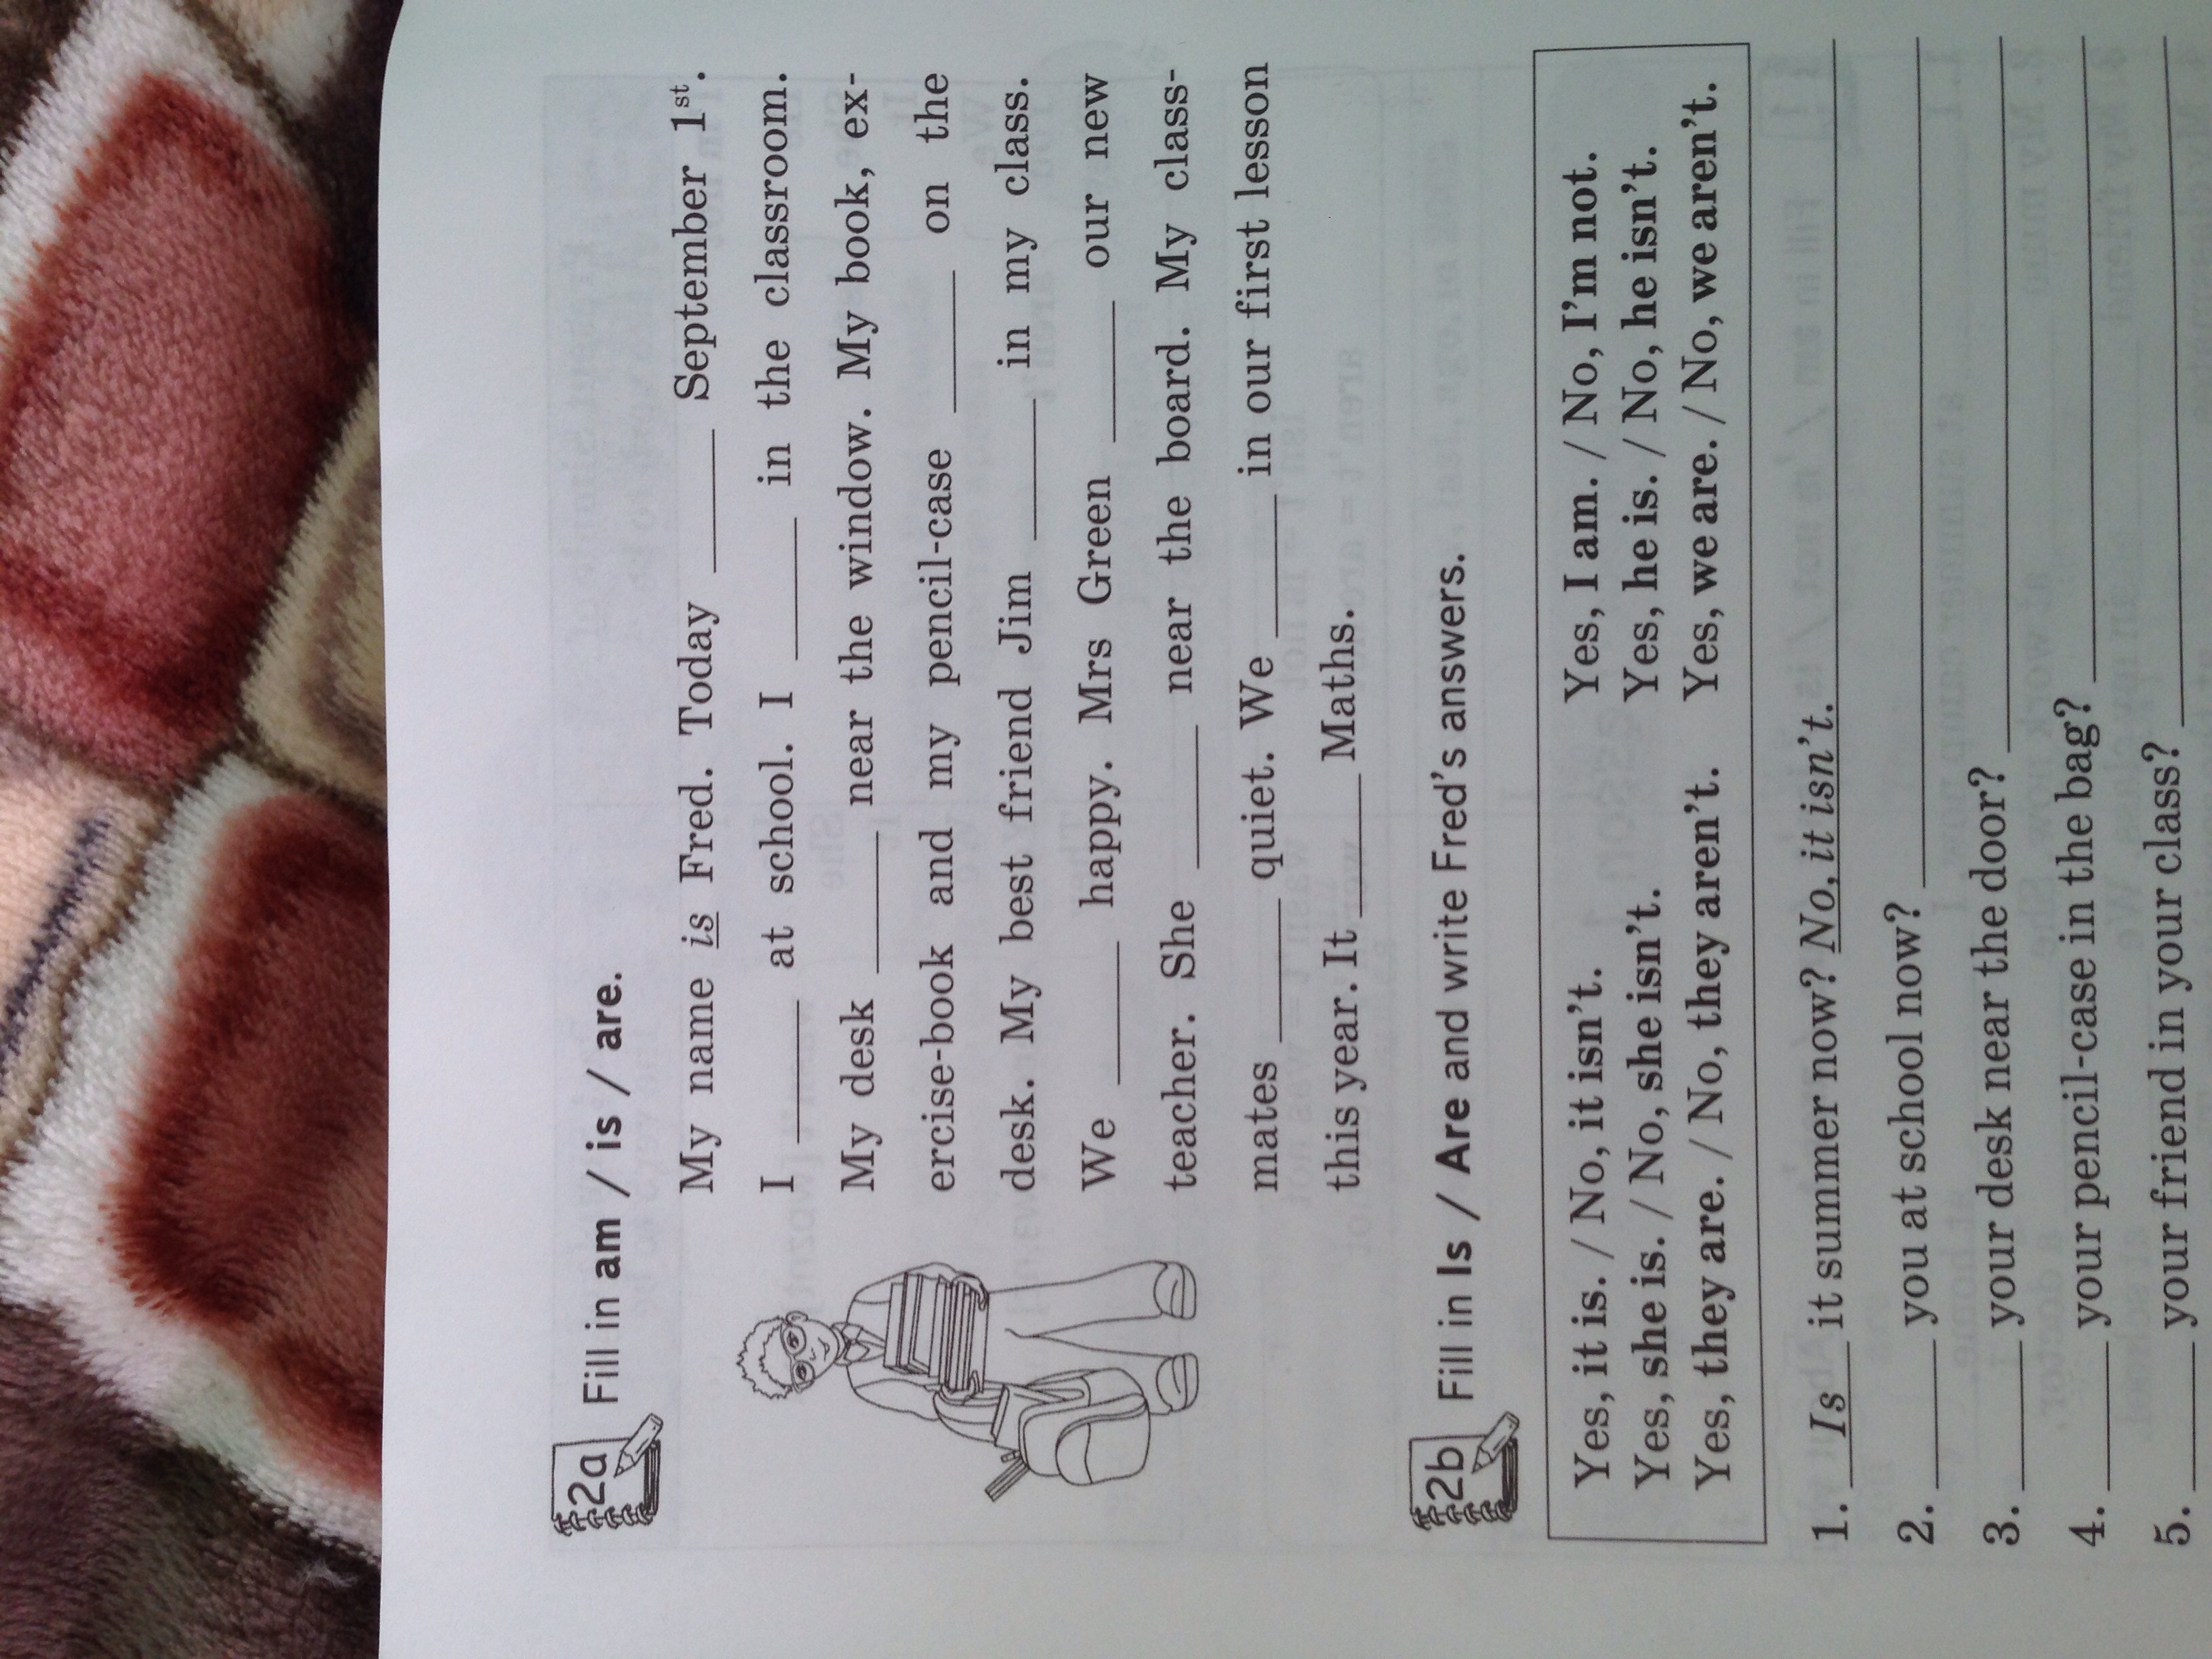 2a Fill in am / is / are.
My name is Fred. Today ____ September 1st.
I ____ at school. I ____ in the classroom.
My desk ____ near the window. My book, ex-
ercise-book and my pencil-case ____ on the
desk. My best friend Jim ____ in my class.
We ____ happy. Mrs Green ____ our new
teacher. She ____ near the board. My class-
mates ____ quiet. We ____ in our first lesson
this year. It ____ Maths.
2b Fill in Is / Are and write Fred's answers.
Yes, it is. / No, it isn't. Yes, I am. / No, I'm not.
Yes, she is. / No, she isn't. Yes, he is. / No, he isn't.
Yes, they are. / No, they aren't. Yes, we are. / No, we aren't.
1. Is it summer now? No, it isn't.
2. ____ you at school now? ____
3. ____ your desk near the door? ____
4. ____ your pencil-case in the bag? ____
5. ____ your friend in your class? ____